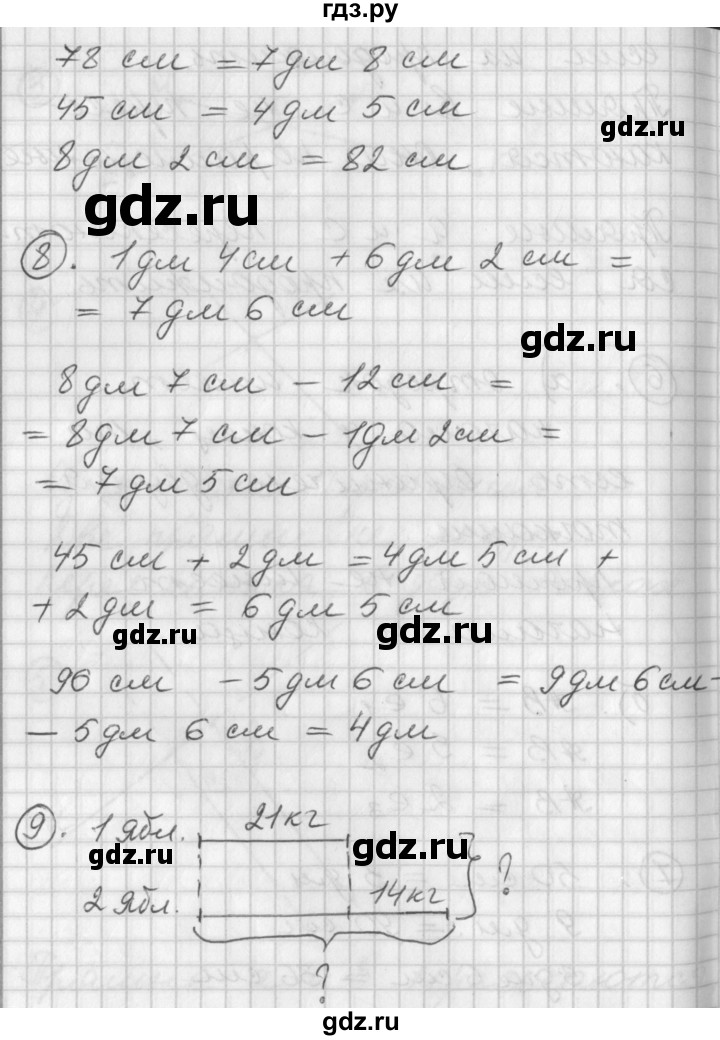 гдз.ру
78 см = 7 дм 8 см
45 см = 4 дм 5 см
gdz.ru
8 дм 2 см = 82 см
gdz.ru
8. 1 дм 4 см + 6 дм 2 см =
= 7 дм 6 см
gdz.ru
8 дм 7 см - 12 см =
= 8 дм 7 см - 1 дм 2 см =
= 7 дм 5 см
45 см + 2 дм = 4 дм 5 см +
+ 2 дм = 6 дм 5 см
gdz.ru
gdz.ru
96 см - 5 дм 6 см = 9 дм 6 см -
- 5 дм 6 см = 4 дм
9. 1 ябл. 21 кг
gdz.ru
gdz.ru
?
2 ябл. 14 кг
?
gdz.ru